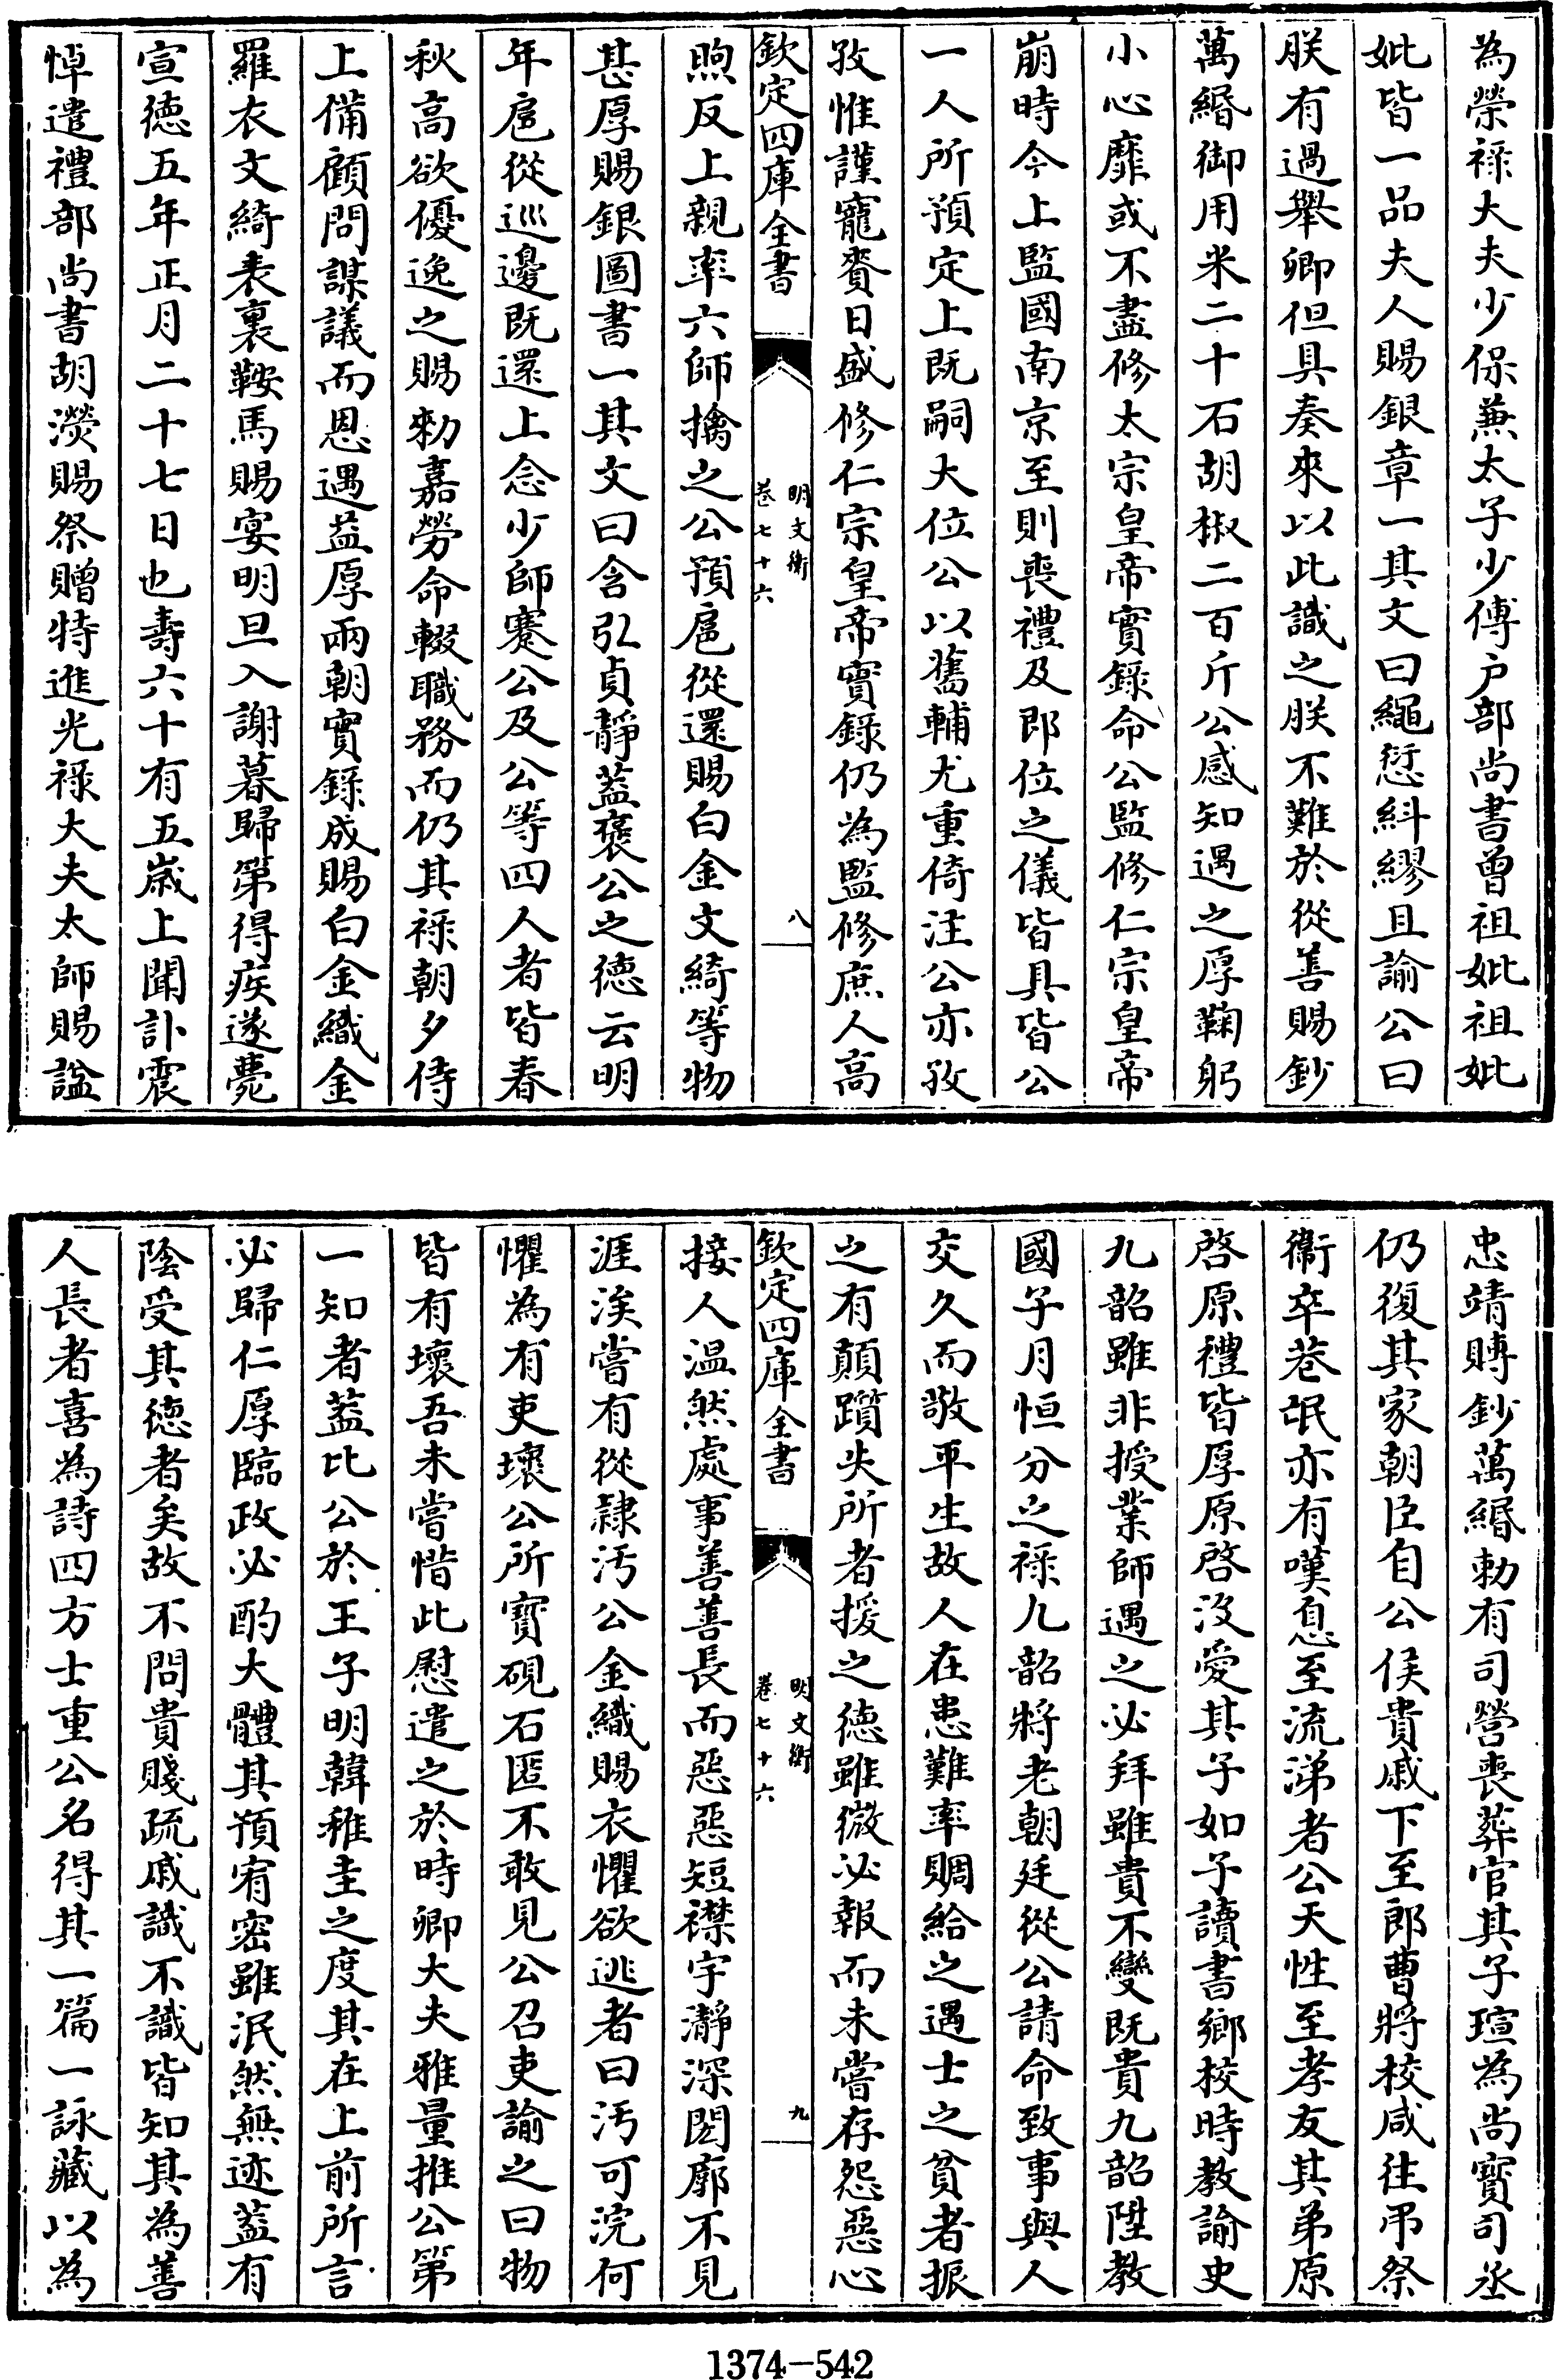 為榮祿大夫少保兼太子少傅户部尚書曽祖妣祖妣
妣皆一品夫人賜銀章一其文曰繩愆糾繆且諭公曰
朕有過舉卿但具奏來以此識之朕不難於從善賜鈔
萬緡御用米二十石胡椒二百斤公感知遇之厚鞠躬
小心靡或不盡修太宗皇帝實錄命公監修仁宗皇帝
崩時今上監國南京至則喪禮及即位之儀皆具皆公
一人所預定上既嗣大位公以舊輔尤重倚注公亦孜
孜惟謹寵賚日盛修仁宗皇帝實錄仍為監修庶人高
欽定四庫全書
明文衡
卷七十六
八
煦反上親率六師擒之公預扈從還賜白金文綺等物
甚厚賜銀圖書一其文曰含弘貞靜葢褒公之德云明
年扈從巡邊既還上念少師蹇公及公等四人者皆春
秋高欲優逸之賜勅嘉勞命輟職務而仍其祿朝夕侍
上備顧問謀議而恩遇益厚兩朝實錄成賜白金織金
羅衣文綺表裏鞍馬賜宴明旦入謝暮歸第得疾遂薨
宣徳五年正月二十七日也壽六十有五歲上聞訃震
悼遣禮部尚書胡濙賜祭贈特進光祿大夫太師賜諡
忠靖賻鈔萬緡勅有司營喪葬官其子瑄為尚寳司丞
仍復其家朝臣自公侯貴戚下至郎曹將校咸往弔祭
衞卒巷氓亦有嘆息至流涕者公天性至孝友其弟原
啓原禮皆厚原啓沒愛其子如子讀書鄉校時教諭史
九韶雖非授業師遇之必拜雖貴不變既貴九韶陞教
國子月恒分之祿九韶將老朝廷從公請命致事與人
交久而敬平生故人在患難率賙給之遇士之貧者振
之有顛躓失所者援之徳雖微必報而未嘗存怨惡心
欽定四庫全書
明文衡
卷七十六
九
接人温然處事善善長而惡惡短襟宇瀞深閎廓不見
涯涘嘗有從隷汚公金織賜衣懼欲逃者曰汚可浣何
懼為有吏壞公所寳硯石匿不敢見公召吏諭之曰物
皆有壞吾未嘗惜此慰遣之於時卿大夫雅量推公第
一知者葢比公於王子明韓稚圭之度其在上前所言
必歸仁厚臨政必酌大體其預宥密雖泯然無迹葢有
陰受其徳者矣故不問貴賤疏戚識不識皆知其為善
人長者喜為詩四方士重公名得其一篇一詠藏以為
1374-542